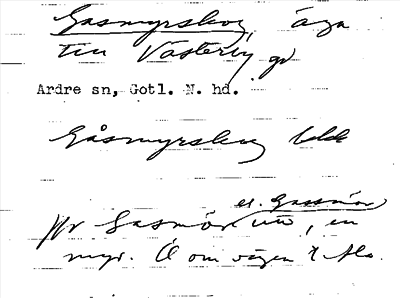 Gasmyrskog, äga
till Västerby gd
Ardre sn, Gotl. N. hd.
Gåsmyrskog
el. Gassmör
Gasmör, en
myr. Ö om vägen t.